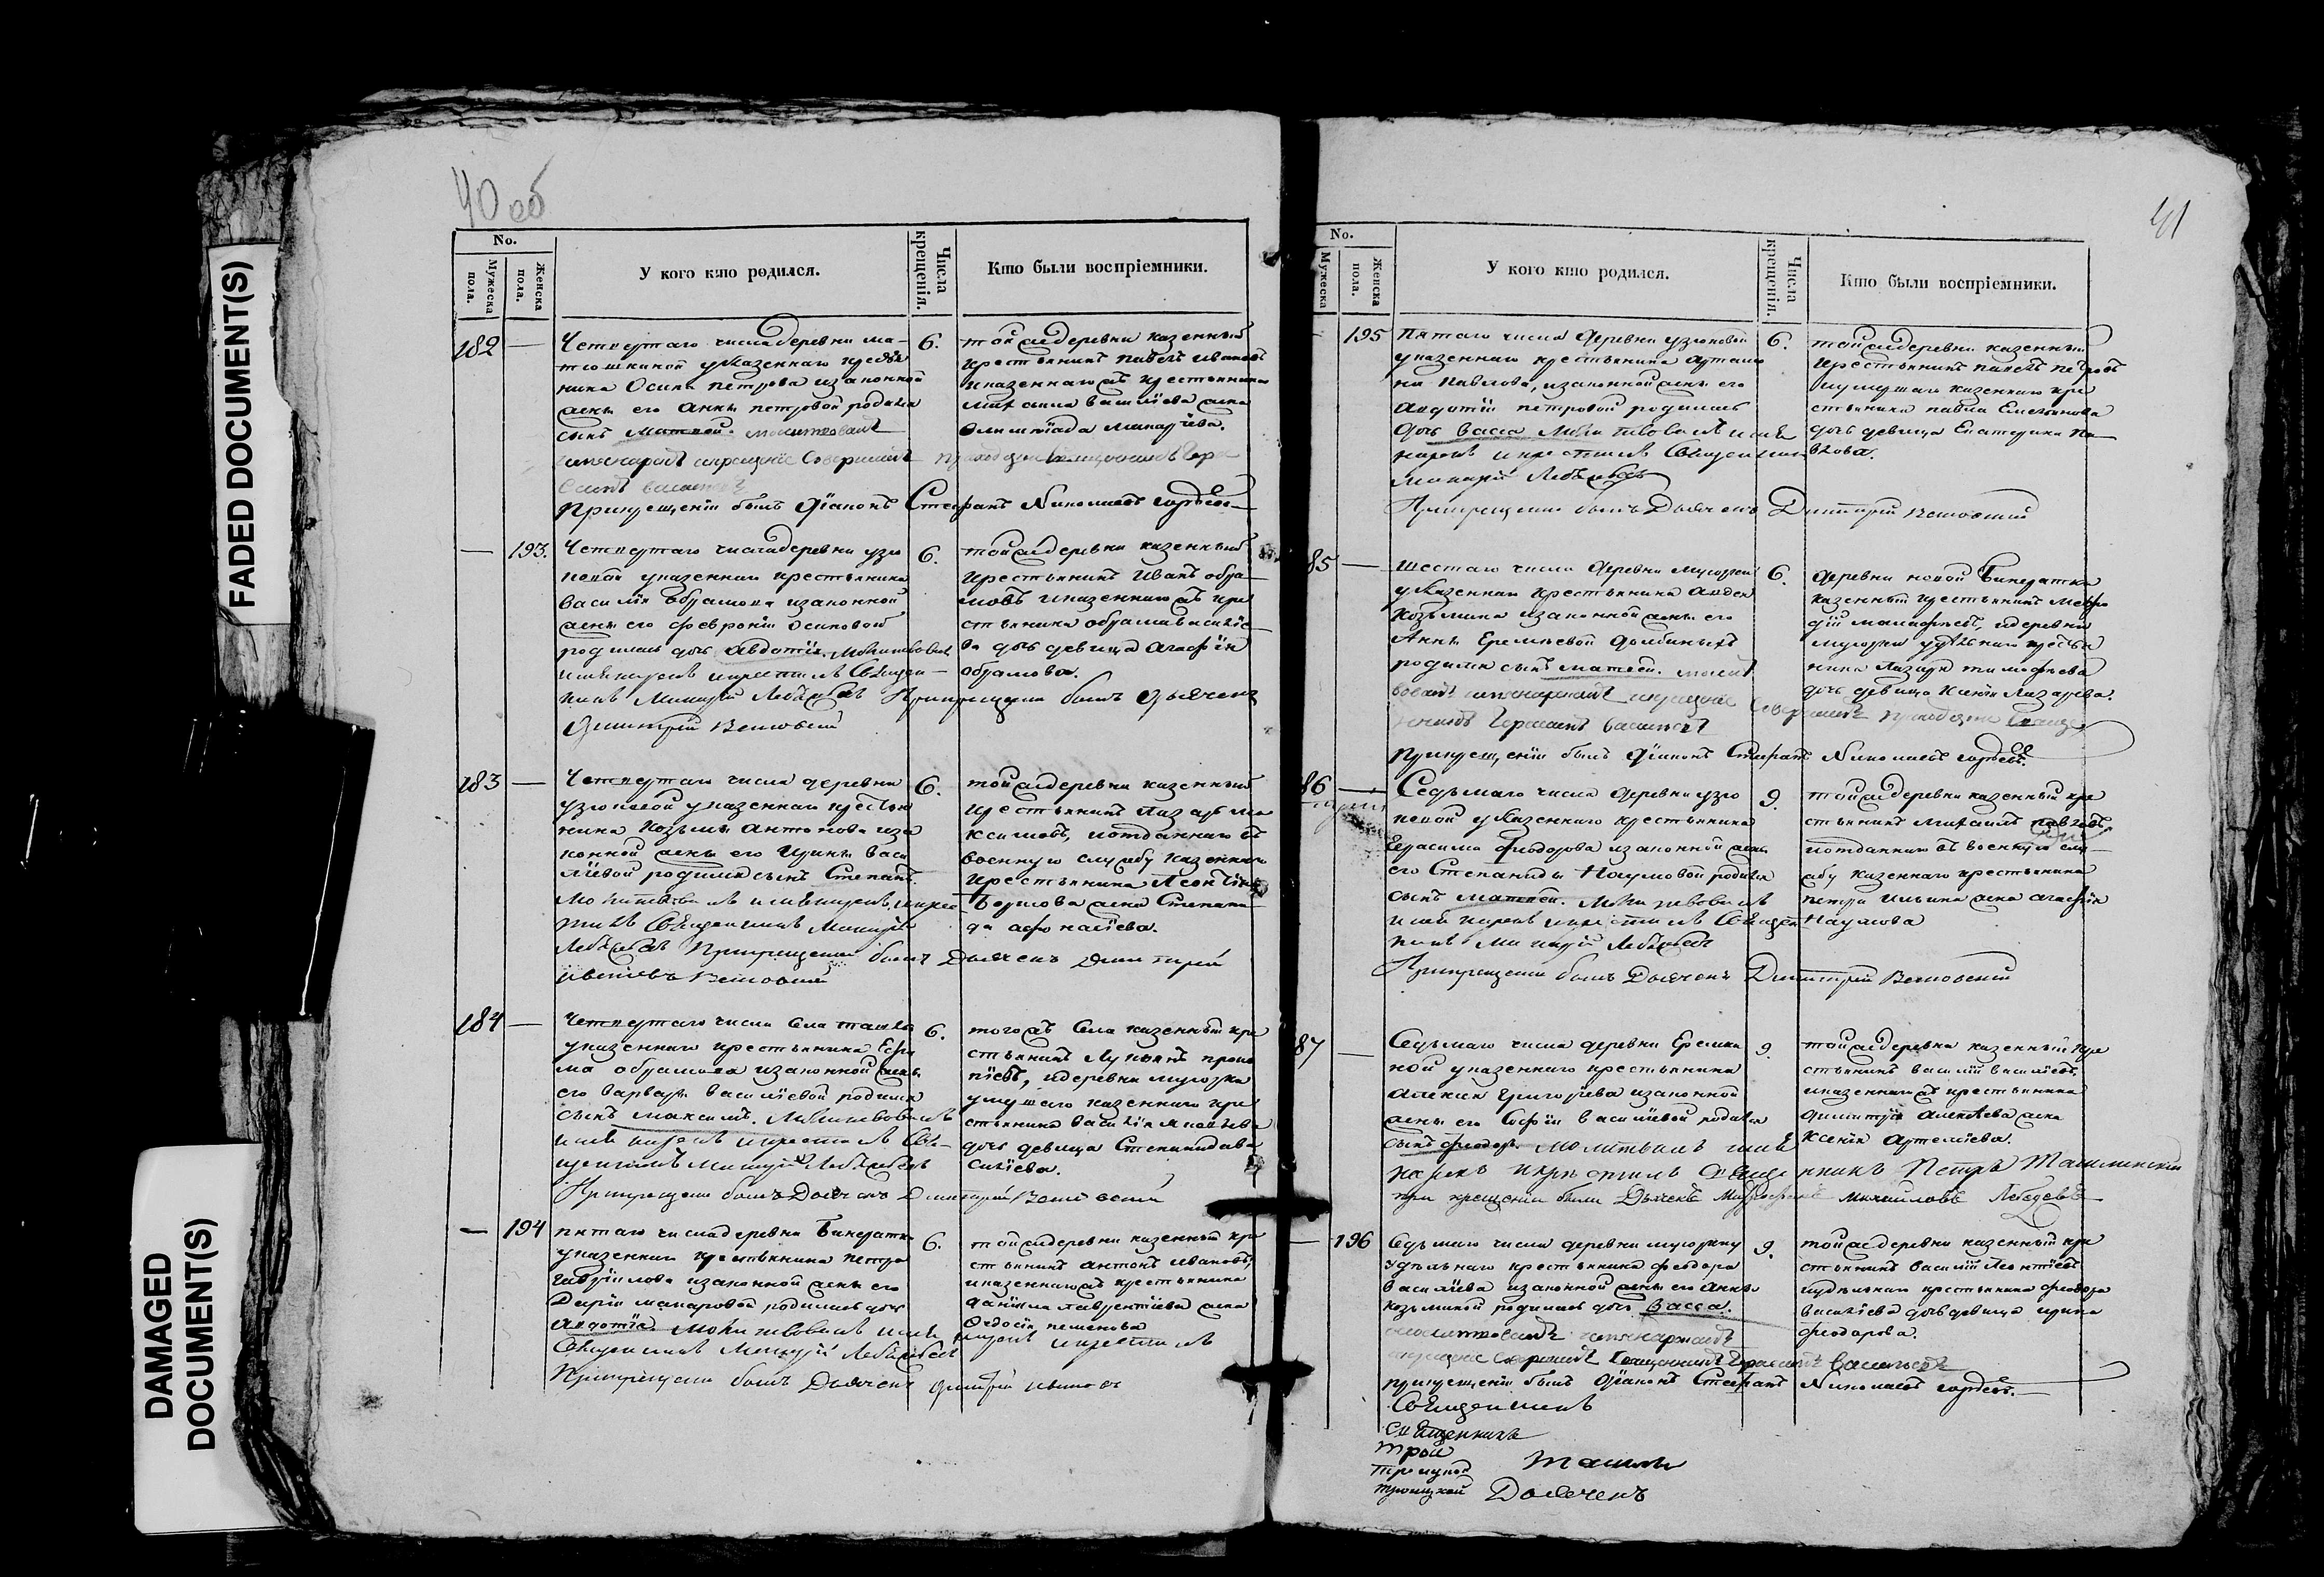 FADED DOCUMENT(S)
DAMAGED
DOCUMENT(S)
40 об
No.
Мужеска пола.
Женска пола.
У кого кто родился.
Числа крещенія.
Кто были воспріемники.
182 —
Четвертаго числа деревни ма-
тюшкиной у казеннаго кресть
нина Осипа петрова иззаконной
жены его Анны петровой родился
сынъ Матвей. молитвовалъ
имянарекъ и крещеніе совершилъ
При крещеніи былъ діаконъ Стефанъ Николаевъ
6.
той же деревни казенный
крестьянинъ павелъ ивановъ
и казеннаго жъ крестьянина
василіева жена
Олимпіада макаріева.
— 193.
Четвертаго числа деревни узю
ковой у казеннаго крестьянина
василія абрамова иззаконной
жены его февроніи осиповой
родилась дочь Авдотія. Молитвовалъ
имя нарекъ и крестилъ Священ-
никъ Макарій Лебедевъ При крещеніи былъ Дьячекъ
Димитрій
6.
той же деревни казенный
крестьянинъ Иванъ абра-
мовъ и казеннаго жъ кре
стьянина абрама василіе
ва дочь девица агафія
абрамова.
183 —
Четвертаго числа деревни
узюковой у казеннаго крестья
нина Козьмы антонова изза
конной жены его Ирины васи
ліевой родился сынъ Степанъ.
Молитвовалъ и имя нарекъ, и крес
тилъ Священникъ Макарій
Лебедевъ При крещеніи былъ Дьячекъ Димитрій
ивановъ
6.
той же деревни казенный
крестьянинъ Лазарь ма
ксимовъ, и отданнаго въ
военную службу казеннаго
крестьянина Леонтія
жена Степани
да афонасіева.
184 —
Четвертаго числа села ташлы
у казеннаго крестьянина Ефи
ма абрамова иззаконной жены
его варвары василіевой родился
сынъ максимъ. Молитвовалъ
имя нарекъ и крестилъ Свя-
щенникъ Макарій Лебедевъ
При крещеніи былъ Дьячекъ Димитрій
6.
того жъ села казенный кре
стьянинъ Лукьянъ проко
піевъ, и деревни мусорки
умершаго казеннаго кре
стьянина василія
дочь девица Степанида ва
силіева.
— 194
пятаго числа деревни Бинератки
у казеннаго крестьянина петра
гаврилова иззаконной жены его
Даріи макаровой родилась дочь
Авдотія. Молитвовалъ имя нарекъ и крестилъ
Священникъ Макарій Лебедевъ
При крещеніи былъ Дьячекъ Димитрій ивановъ
6.
той же деревни казенный кре
стьянинъ антонъ ивановъ,
и казеннаго жъ крестьянина
даніила лаврентіева жена
Федосія
41
No.
Мужеска
Женска пола.
У кого кто родился.
Числа крещенія.
Кто были воспріемники.
195
Пятаго числа деревни узюковой
у казеннаго крестьянина артамо
на павлова, иззаконной жены его
Авдотіи петровой родилась
дочь васса Молитвовалъ имя
нарекъ и крестилъ Священникъ
Макарій Лебедевъ
При крещеніи былъ Дьячекъ Димитрій
6.
той же деревни казенный
крестьянинъ павелъ петровъ
и умершаго казеннаго кре
стьянина павла Емельянова
дочь девица Екатерина па
влова.
85 —
Шестаго числа деревни мусорки
у казеннаго крестьянина авдея
Козьмина иззаконной жены его
Анны Еремѣевой
родился сынъ матвей. молит
вовалъ имянарекъ крещеніе совершилъ
При крещеніи былъ діаконъ Стефанъ Николаевъ
6.
деревни новой Бинератки
казенный крестьянинъ
и деревни
мусорки удѣльнаго крестья
нина Лазаря тимофеева
дочь девица Ксенія Лазарева.
86 —
Седьмаго числа деревни узю
ковой у казеннаго крестьянина
Герасима феодорова иззаконной жены
его Степаниды Наумовой родился
сынъ матвей. Молитвовалъ
имя нарекъ и крестилъ Священ
никъ Макарій Лебедевъ
При крещеніи былъ Дьячекъ Димитрій
9.
той же деревни казенный кре
стьянинъ михаилъ павловъ,
и отданнаго въ военную слу
жбу казеннаго крестьянина
петра ильина жена агафія
Наумова
87 —
Седьмаго числа деревни Еремки
ной у казеннаго крестьянина
алексія григорьева иззаконной
жены его Софіи василіевой родился
сынъ феодоръ. Молитвовалъ имя
нарекъ и крестилъ Священникъ Петръ Ташлинскій
при крещеніи были Дьячекъ Михайловъ Лебедевъ
9.
той же деревни казенный кре
стьянинъ василій василіевъ,
и казеннаго жъ крестьянина
димитрія алексѣева жена
Ксенія Артеміева.
— 196
Седьмаго числа деревни мусорки у
удѣльнаго крестьянина феодора
василіева иззаконной жены его анны
козьминой родилась дочь васса.
молитвовалъ имянарекъ
крещеніе совершилъ священникъ Герасимъ васильевъ
при крещеніи былъ діаконъ Стефанъ Николаевъ
9.
той же деревни казенный кре
стьянинъ василій Леонтіевъ
и удѣльнаго крестьянина феодора
василіева дочь девица ирина
феодорова.
Священникъ
священникъ
трои
троицкой
троицкой
Дьячекъ